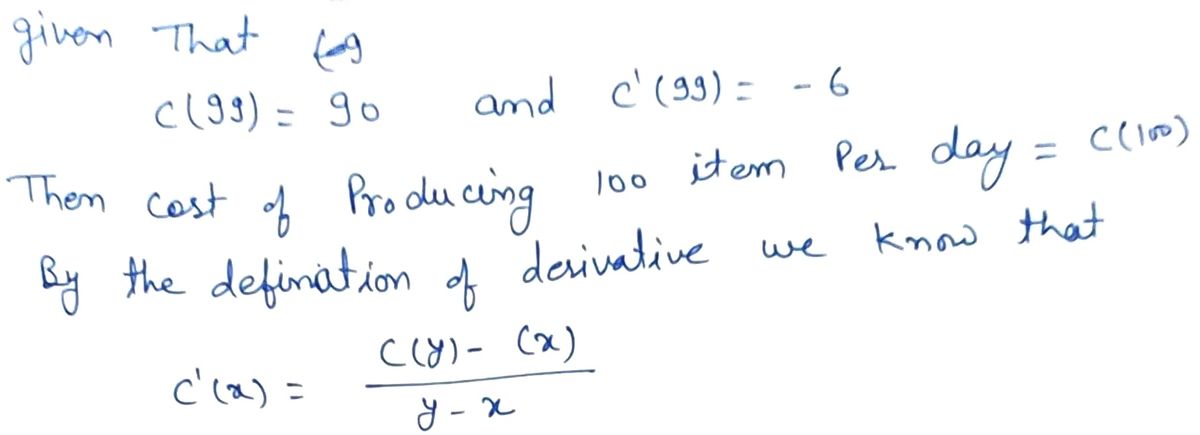 given That
C(99) = 90 and C'(99) = - 6
Then cost of Producing 100 item Per day = C(100)
By the defination of derivative we know that
C'(x) = C(y) - (x) / y - x